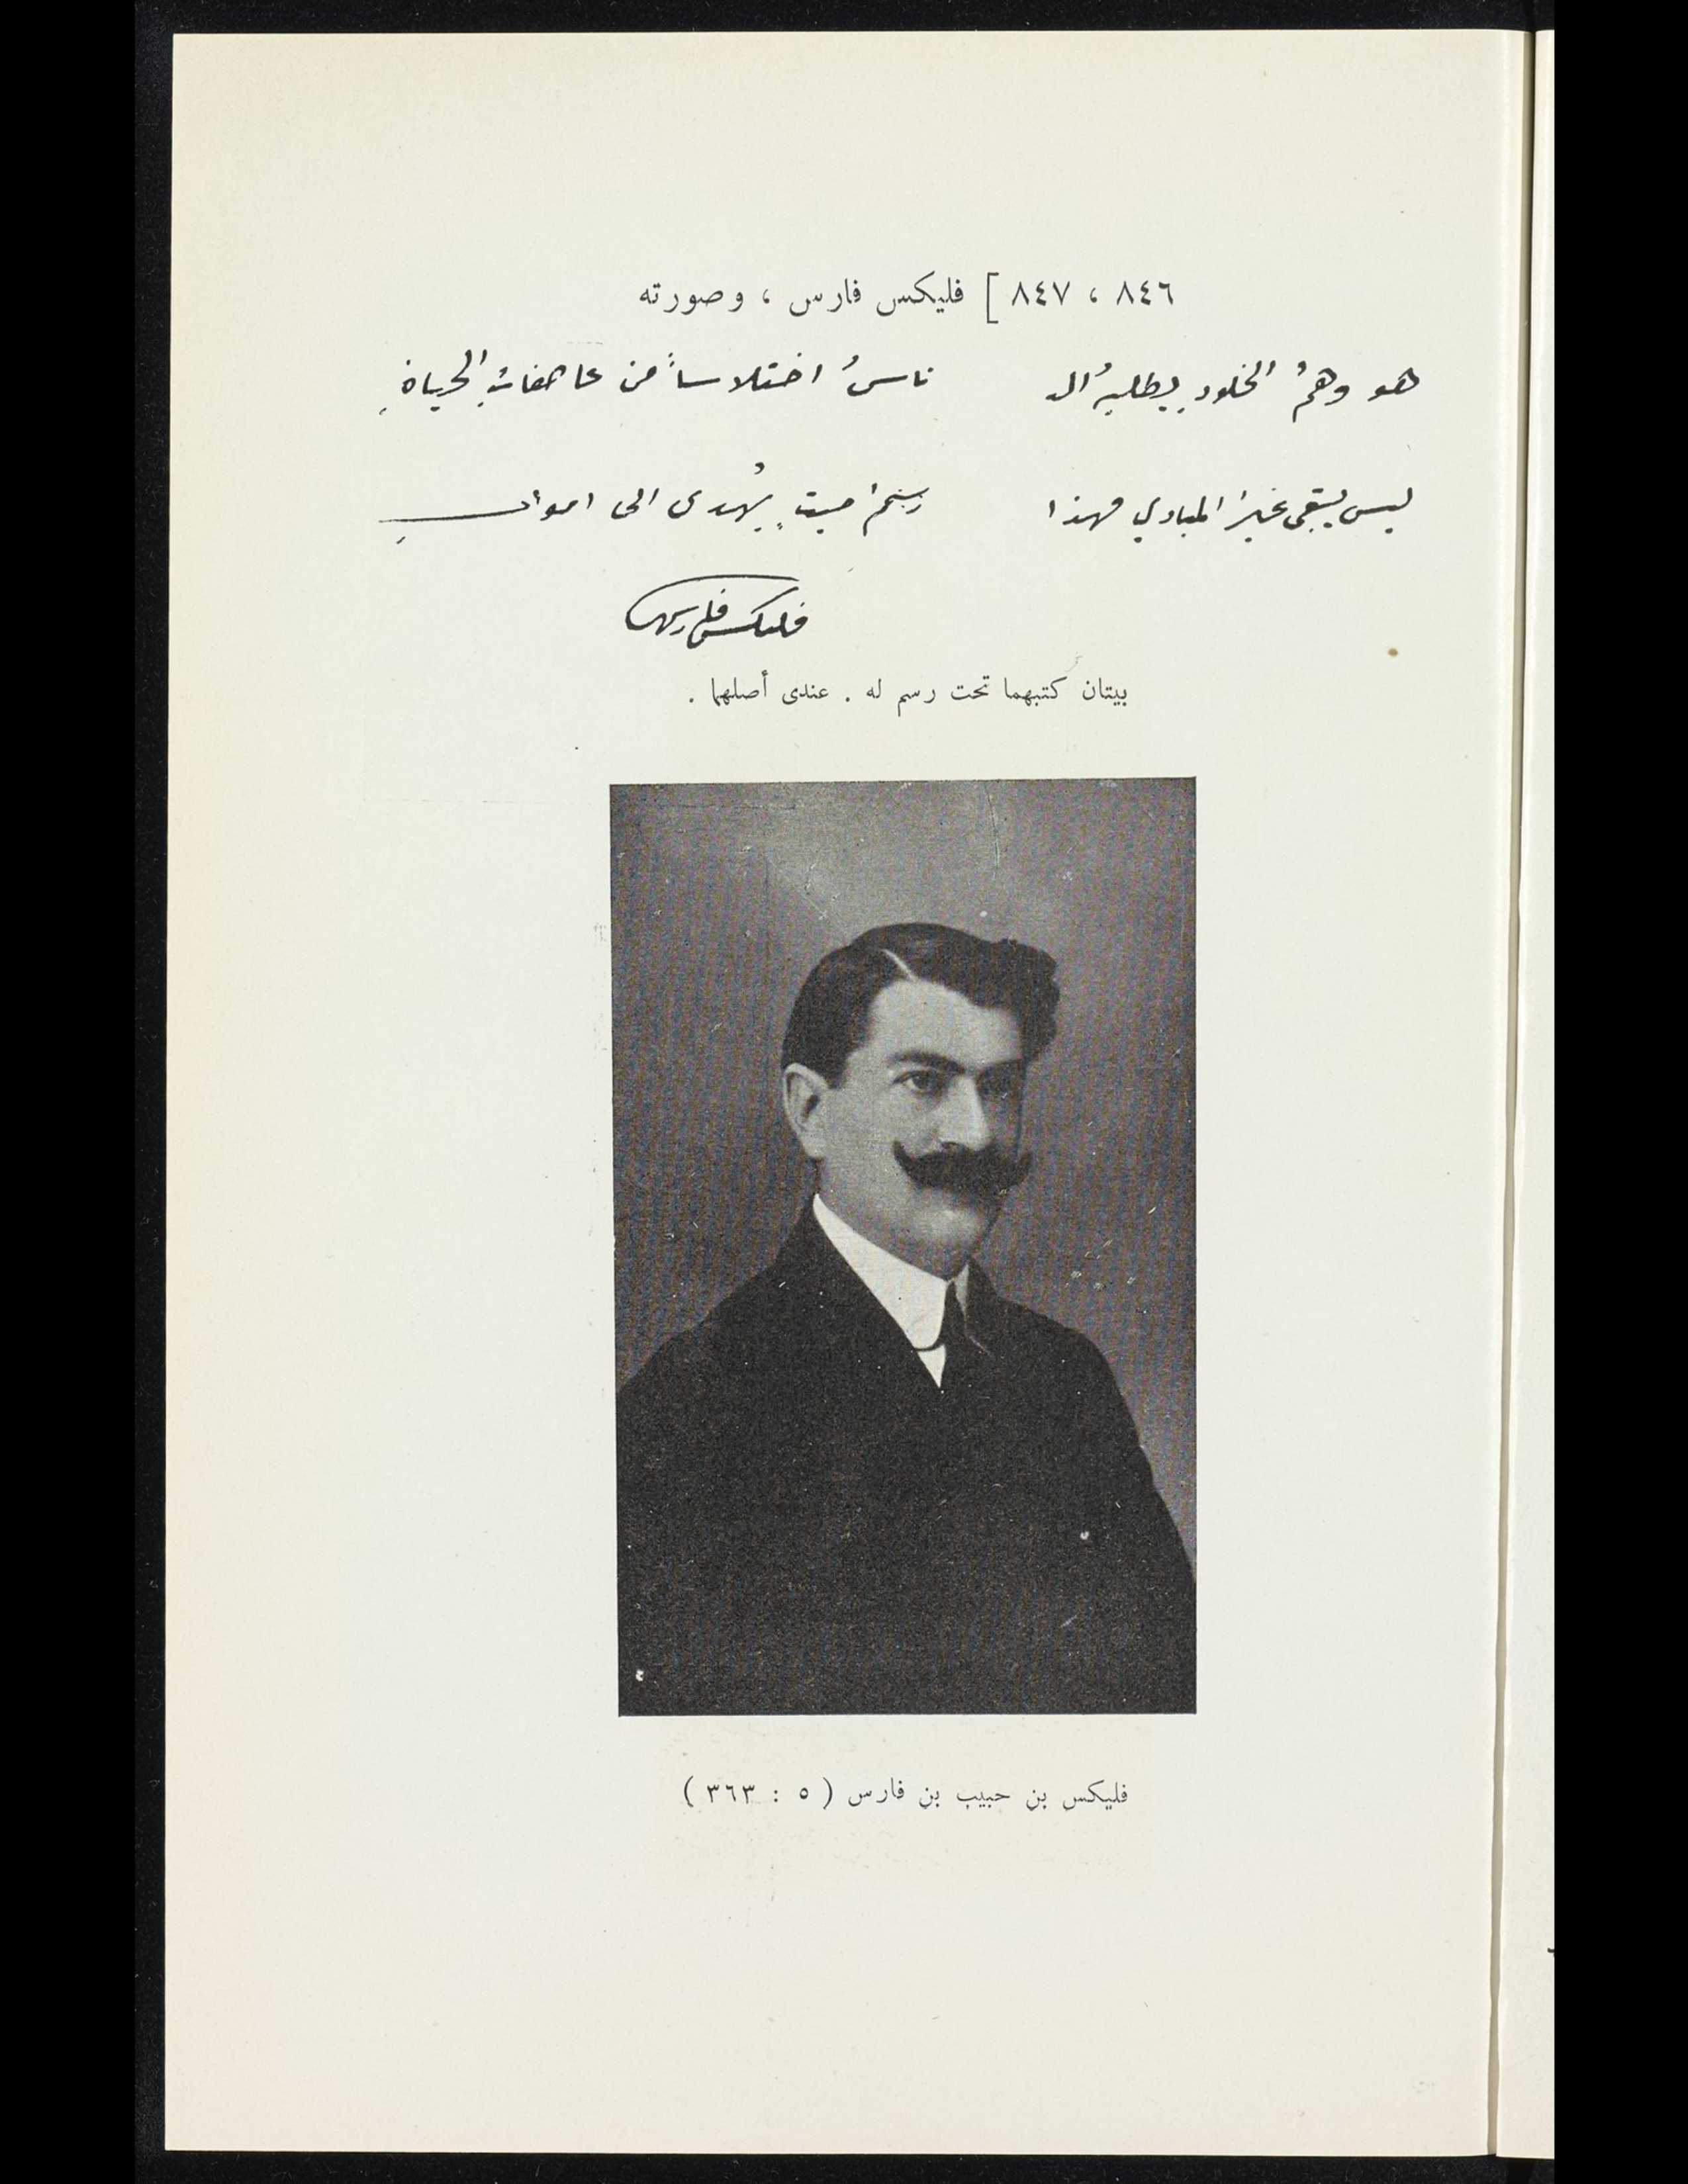 ٨٤٦ ، ٨٤٧ ] فليكس فارس ، وصورته
هو وهمُ الخلودِ يطلبهُ الـ ناسُ اختلاساً من عاصفاتِ الحياةِ
ليس يبقى غيرُ المبادي فهذا رسمُ ميتٍ يُهدى الى امواتِ
فليكس فارس
بيتان كتبهما تحت رسم له . عندى أصلهما .
فليكس بن حبيب بن فارس ( ٥ : ٣٦٣ )